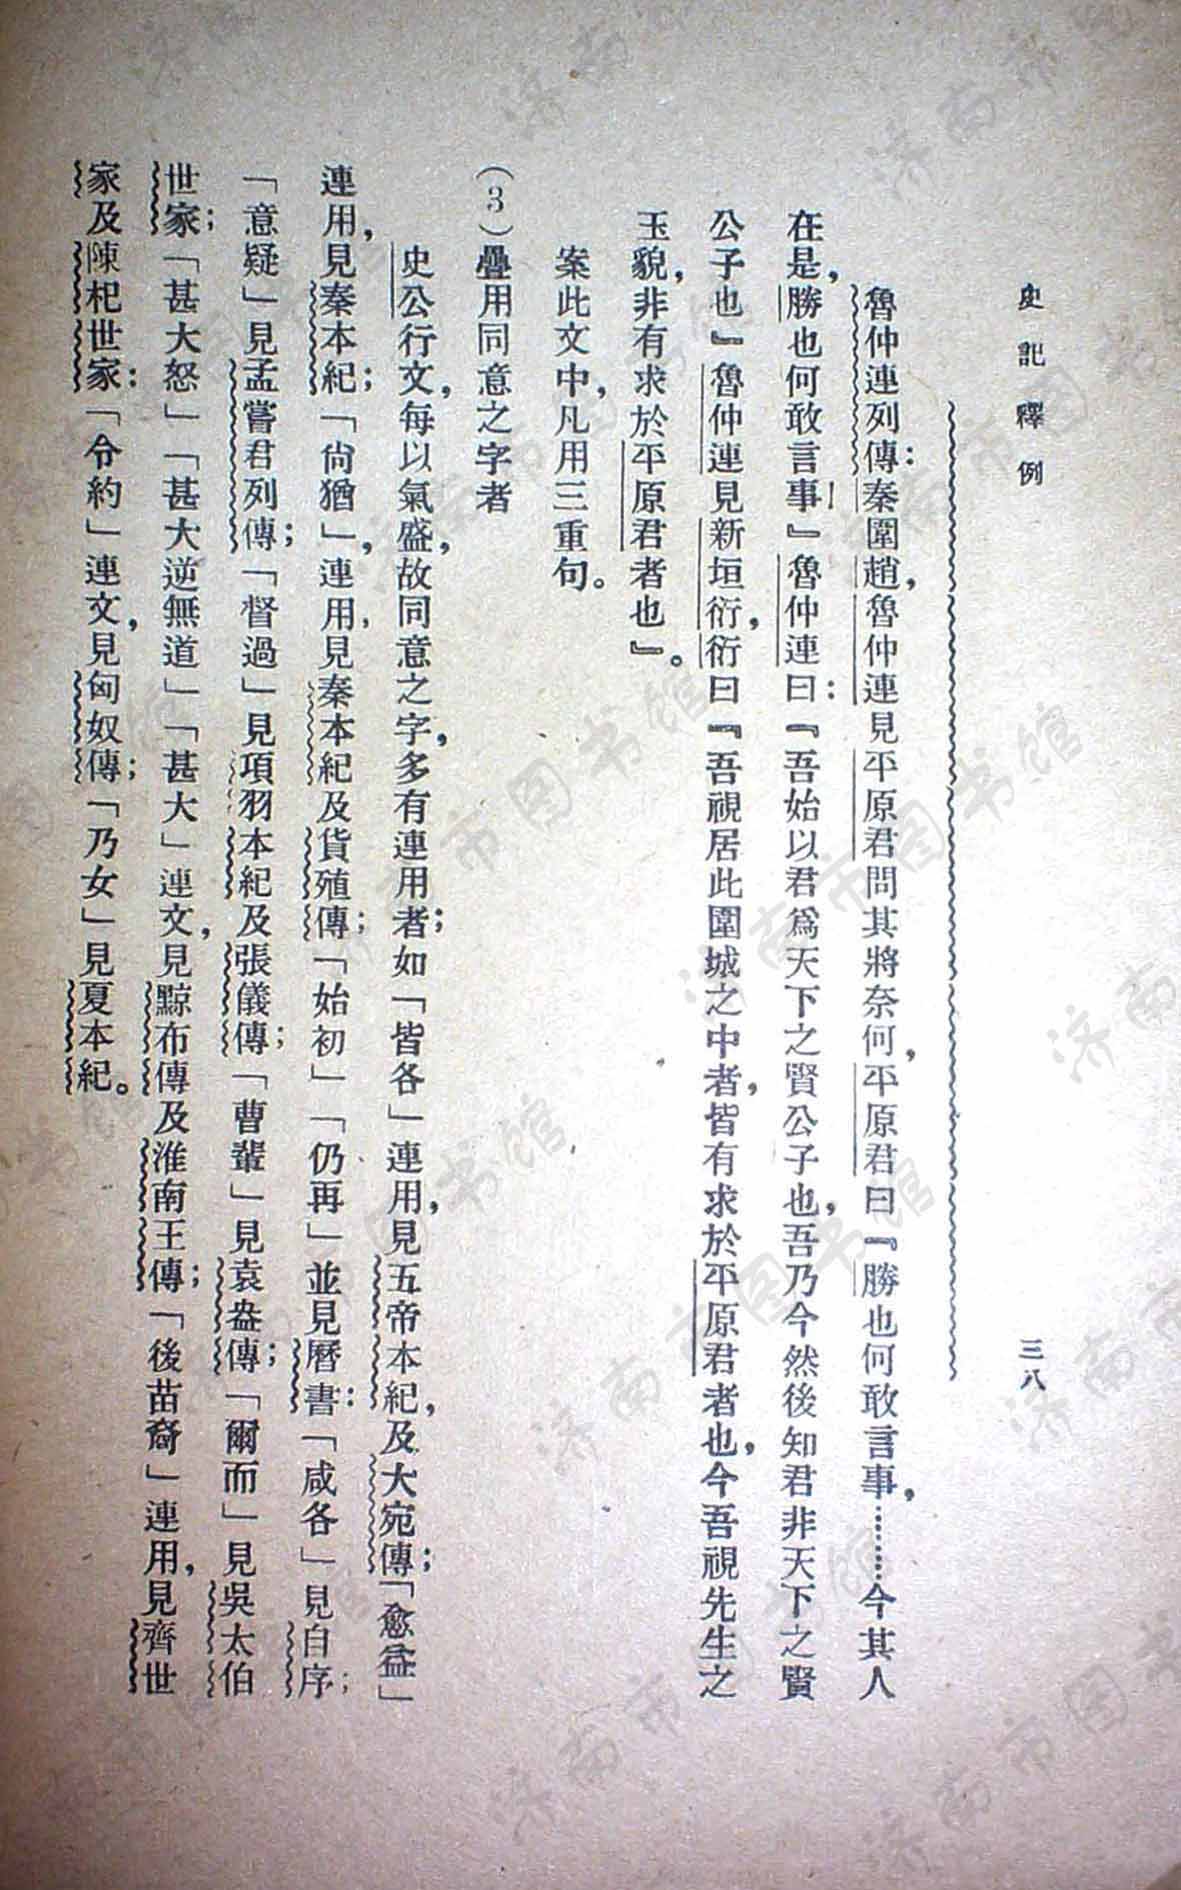 史記釋例　三八
魯仲連列傳：秦圍趙，魯仲連見平原君問其將奈何，平原君曰『勝也何敢言事，……今其人
在是，勝也何敢言事！』魯仲連曰：『吾始以君爲天下之賢公子也，吾乃今然後知君非天下之賢
公子也』魯仲連見新垣衍，衍曰『吾視居此圍城之中者，皆有求於平原君者也，今吾視先生之
玉貌，非有求於平原君者也』。
案此文中，凡用三重句。
（3）疊用同意之字者
史公行文，每以氣盛，故同意之字，多有連用者；如「皆各」連用，見五帝本紀，及大宛傳；「愈益」
連用，見秦本紀；「尙猶」，連用，見秦本紀及貨殖傳；「始初」「仍再」並見曆書：「咸各」見自序；
「意疑」見孟嘗君列傳；「督過」見項羽本紀及張儀傳；「曹輩」見袁盎傳；「爾而」見吳太伯
世家；「甚大怒」「甚大逆無道」「甚大」連文，見黥布傳及淮南王傳；「後苗裔」連用，見齊世
家及陳杞世家：「令約」連文，見匈奴傳；「乃女」見夏本紀。
济南市图书馆